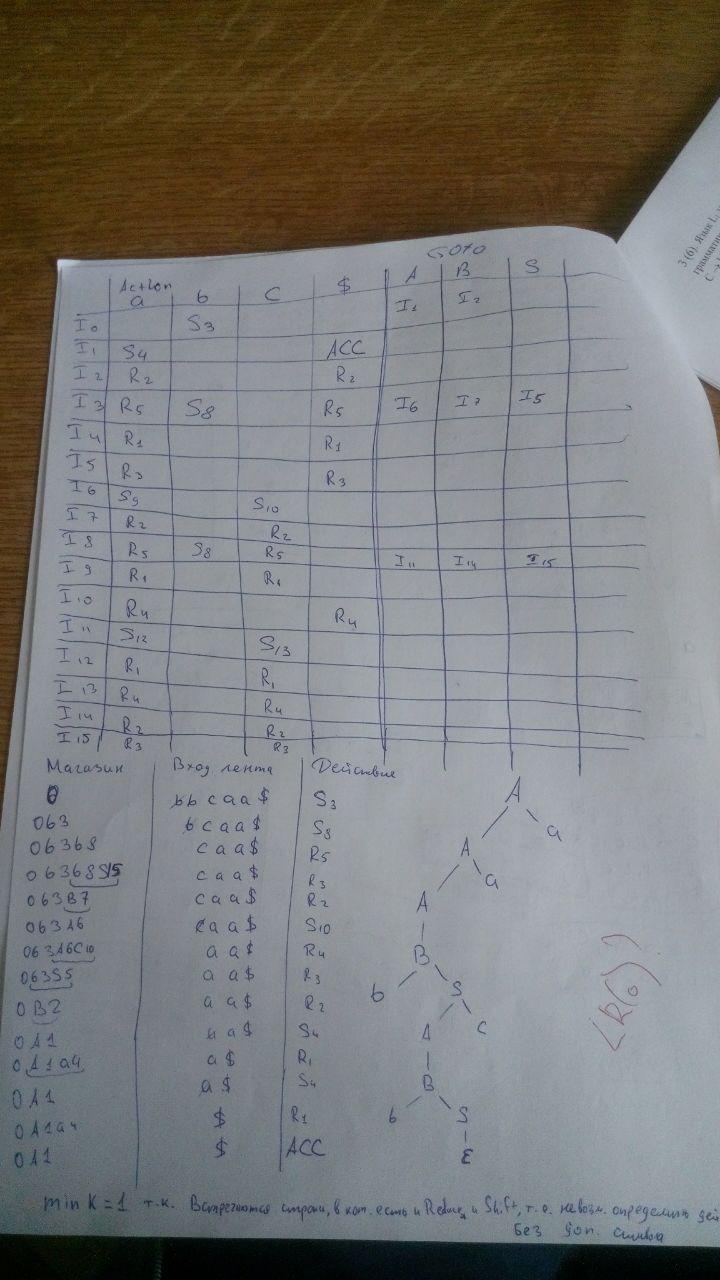 3 (6). Язык L
грамматик
GOTO
Action
a b c $ A B S
I0 S3 I1 I2
I1 S4 ACC
I2 R2 R2
I3 R5 S8 R5 I6 I7 I5
I4 R1 R1
I5 R3 R3
I6 S9 S10
I7 R2 R2
I8 R5 S8 R5 I11 I14 I15
I9 R1 R1
I10 R4 R4
I11 S12 S13
I12 R1 R1
I13 R4 R4
I14 R2 R2
I15 R3 R3
Магазин Вход лента Действие
0 bbcaa$ S3
0b3 bcaa$ S8
0b3b8 caa$ R5
0b3b8S15 caa$ R3
0b3B7 caa$ R2
0b3A6 caa$ S10
0b3A6C10 aa$ R4
0b3S5 aa$ R3
0B2 aa$ R2
0A1 aa$ S4
0A1a4 a$ R1
0A1 a$ S4
0A1a4 $ R1
0A1 $ ACC
A
A a
A a
B
b S
A c
B
b S
ε
LR(0)?
min K=1 т.к. Встречаются строки, в кот. есть и Reduce и Shift, т.о. невозм. определить дей
без доп. символа